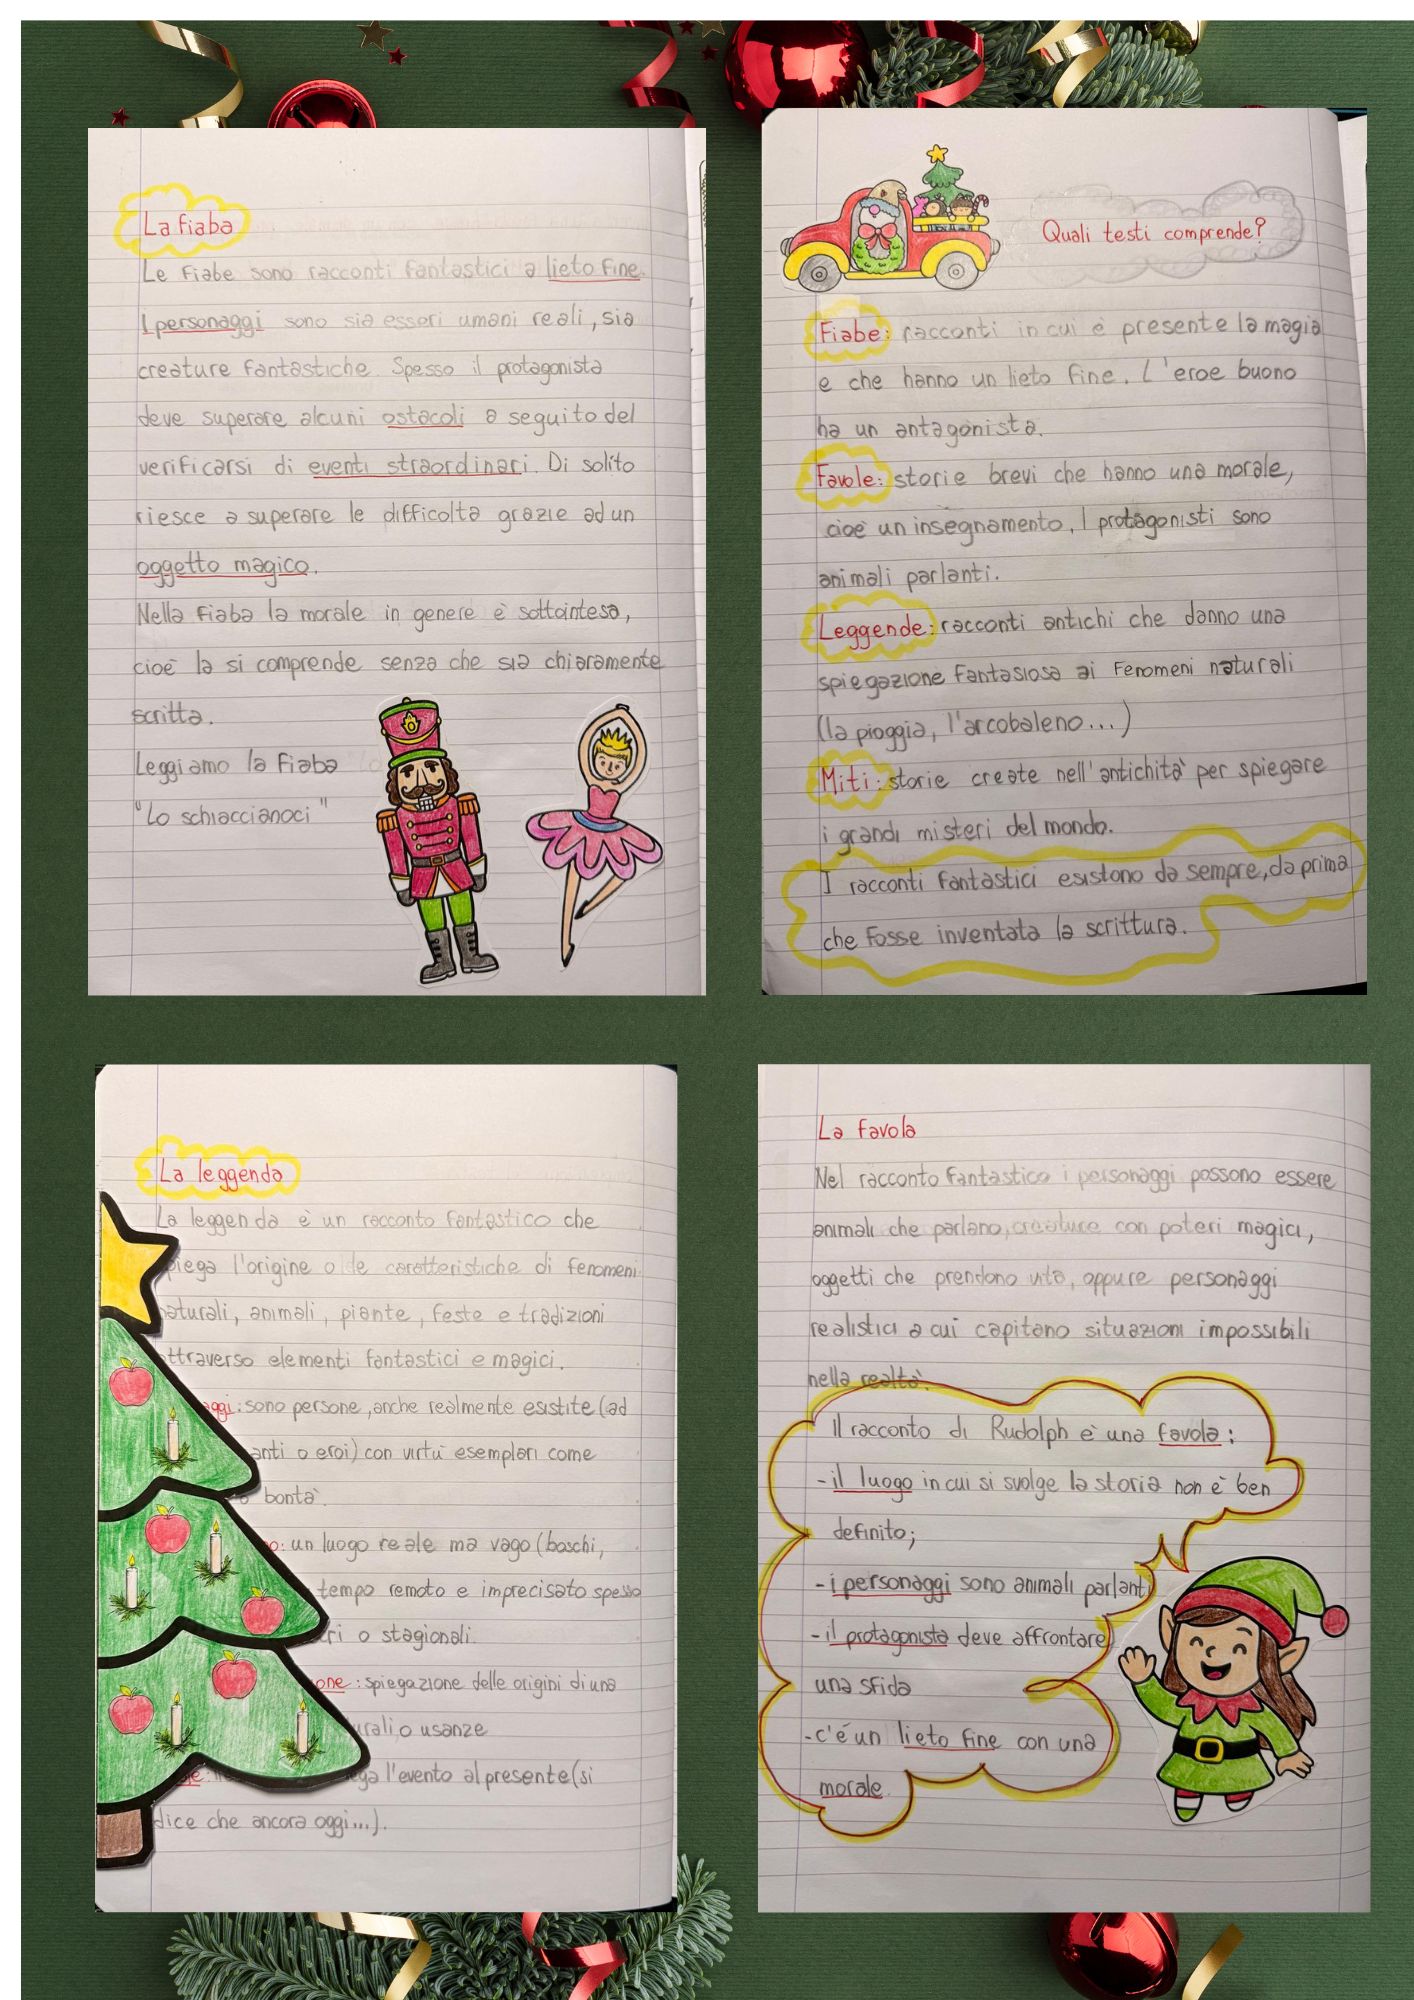 La fiaba
Le fiabe sono racconti fantastici a lieto fine.
I personaggi sono sia esseri umani reali, sia
creature fantastiche. Spesso il protagonista
deve superare alcuni ostacoli a seguito del
verificarsi di eventi straordinari. Di solito
riesce a superare le difficoltà grazie ad un
oggetto magico.
Nella fiaba la morale in genere è sottointesa,
cioè la si comprende senza che sia chiaramente
scritta.
Leggiamo la fiaba
"Lo schiaccianoci"
Quali testi comprende?
Fiabe: racconti in cui è presente la magia
e che hanno un lieto fine. L'eroe buono
ha un antagonista.
Favole: storie brevi che hanno una morale,
cioè un insegnamento. I protagonisti sono
animali parlanti.
Leggende: racconti antichi che danno una
spiegazione fantasiosa ai fenomeni naturali
(la pioggia, l'arcobaleno...)
Miti: storie create nell'antichità per spiegare
i grandi misteri del mondo.
I racconti fantastici esistono da sempre, da prima
che fosse inventata la scrittura.
La leggenda
La leggenda è un racconto fantastico che
piega l'origine o le caratteristiche di fenomeni
naturali, animali, piante, feste e tradizioni
ttraverso elementi fantastici e magici.
aggi: sono persone, anche realmente esistite (ad
anti o eroi) con virtù esemplari come
bontà.
o: un luogo reale ma vago (boschi,
tempo remoto e imprecisato spesso
tri o stagionali.
one: spiegazione delle origini di una
urali, o usanze
ega l'evento al presente (si
dice che ancora oggi...).
La favola
Nel racconto fantastico i personaggi possono essere
animali che parlano, creature con poteri magici,
oggetti che prendono vita, oppure personaggi
realistici a cui capitano situazioni impossibili
nella realtà.
Il racconto di Rudolph è una favola:
- il luogo in cui si svolge la storia non è ben
definito;
- i personaggi sono animali parlanti
- il protagonista deve affrontare
una sfida
- c'é un lieto fine con una
morale.